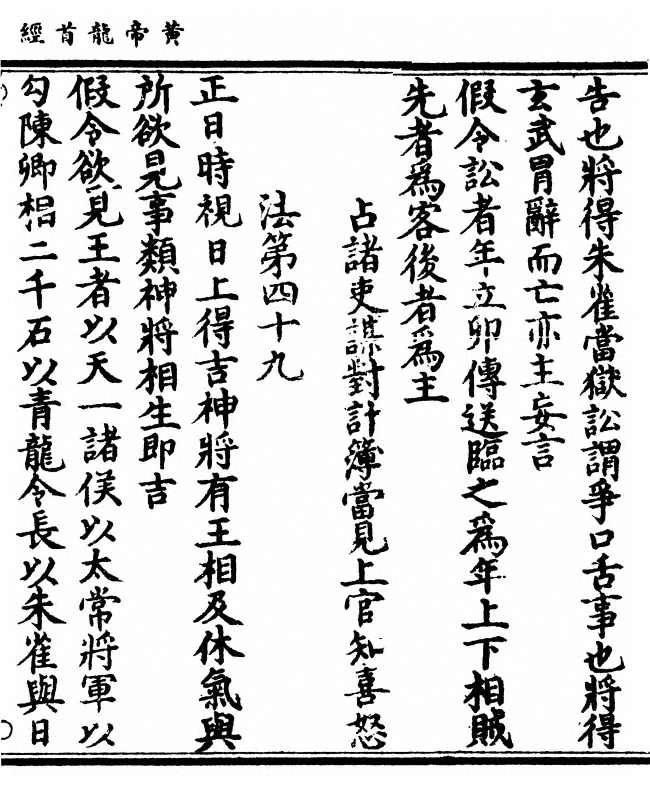 黃帝龍首經
告也將得朱雀當獄訟謂爭口舌事也將得
玄武冒辭而亡亦主妄言
假令訟者年立卯傳送臨之爲年上下相賊
先者爲客後者爲主
占諸吏謀對計簿當見上官知喜怒
法第四十九
正日時視日上得吉神將有王相及休氣與
所欲見事類神將相生即吉
假令欲見王者以天一諸侯以太常將軍以
勾陳卿相二千石以青龍令長以朱雀與日